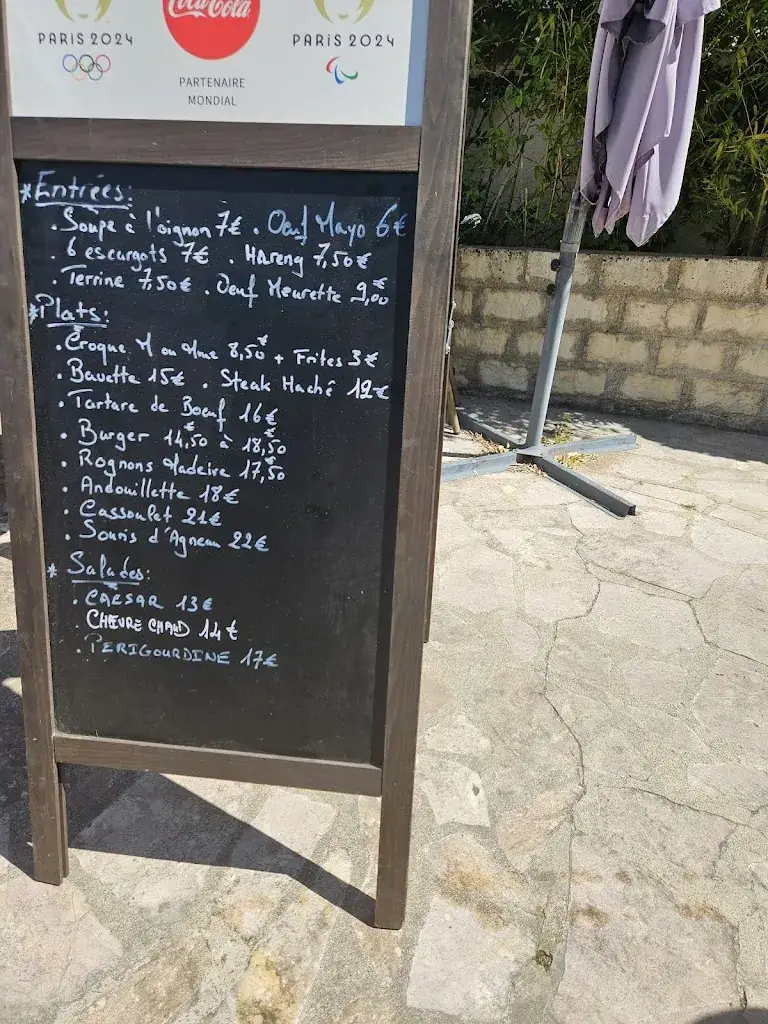 PARIS 2024
Coca-Cola
PARIS 2024
PARTENAIRE
MONDIAL
* Entrées:
. Soupe à l'oignon 7€ . Oeuf Mayo 6€
. 6 escargots 7€ . Hareng 7,50€
. Terrine 7,50€ . Oeuf Meurette 9,00€
* Plats:
. Croque M ou Mme 8,50€ + Frites 3€
. Bavette 15€ . Steak Haché 12€
. Tartare de Boeuf 16€
. Burger 14,50€ à 18,50€
. Rognons Madeire 17,50€
. Andouillette 18€
. Cassoulet 21€
. Souris d'Agneau 22€
* Salades:
. CAESAR 13€
CHEVRE CHAUD 14€
. PERIGOURDINE 17€